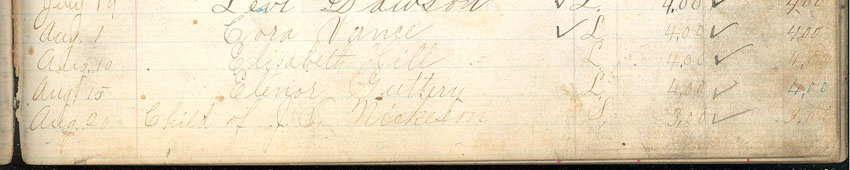 July 19 Levi Dawson ✓ L. 4.00 ✓ 4.00
Aug. 1 Cora Vance ✓ L 4.00 ✓ 4.00
Aug. 10 Elizabeth Hill L. 4.00 ✓ 4.
Aug. 15 Elenor Guttery L. 4.00 ✓ 4.00
Aug. 20 Child of J. S. Nickeson S. 3.00 ✓ 3.00